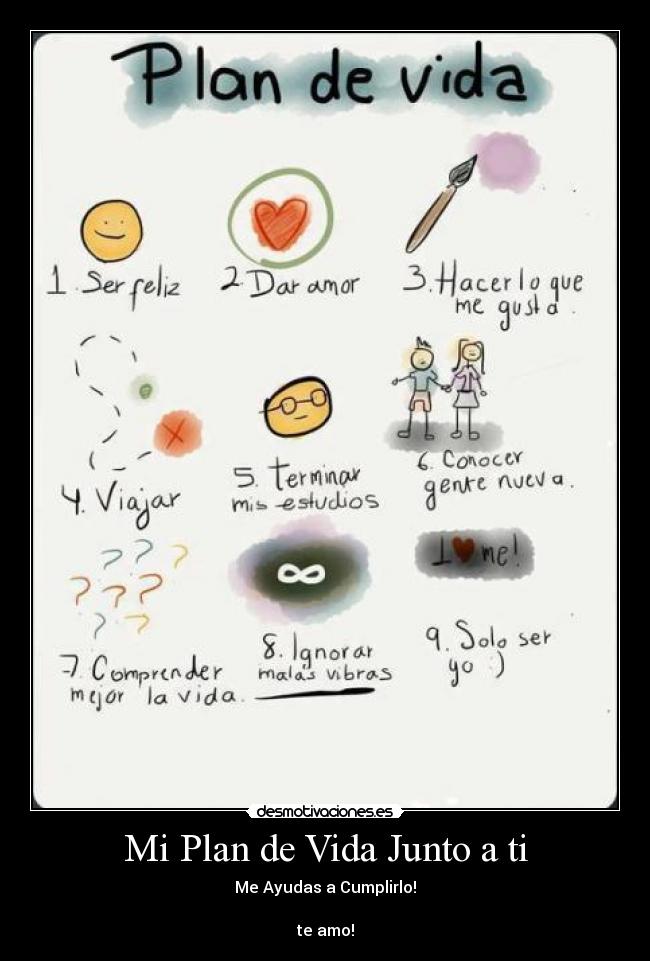 Plan de vida
1. Ser feliz
2. Dar amor
3. Hacer lo que
me gusta.
4. Viajar
5. terminar
mis estudios
6. Conocer
gente nueva.
? ? ?
? ? ?
? ?
7. Comprender
mejor la vida.
∞
8. Ignorar
malas vibras
I ♥ me!
9. Solo ser
yo :)
desmotivaciones.es
Mi Plan de Vida Junto a ti
Me Ayudas a Cumplirlo!
te amo!